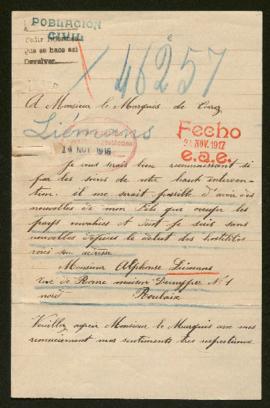 POBLACION
CIVIL
que se haga así
devolver.
46257
A Monsieur le Marquis de
Liémans
Fecho
21 NOV. 1917
e.a.e.
14 NOV 1916
je vous serais bien reconnaissant si
par les soins de votre haute interven-
tion, il me serait possible d'avoir des
nouvelles de mon fils que occupe les
pays envahies et dont je suis sans
nouvelles depuis le début des hostilités
voici son adresse
Monsieur Alphonse Liémans
rue de Rome maison Nº 1
nord Roubaix
Veuillez agréer Monsieur le Marquis avec mes
remerciement mes sentiments très respectueux